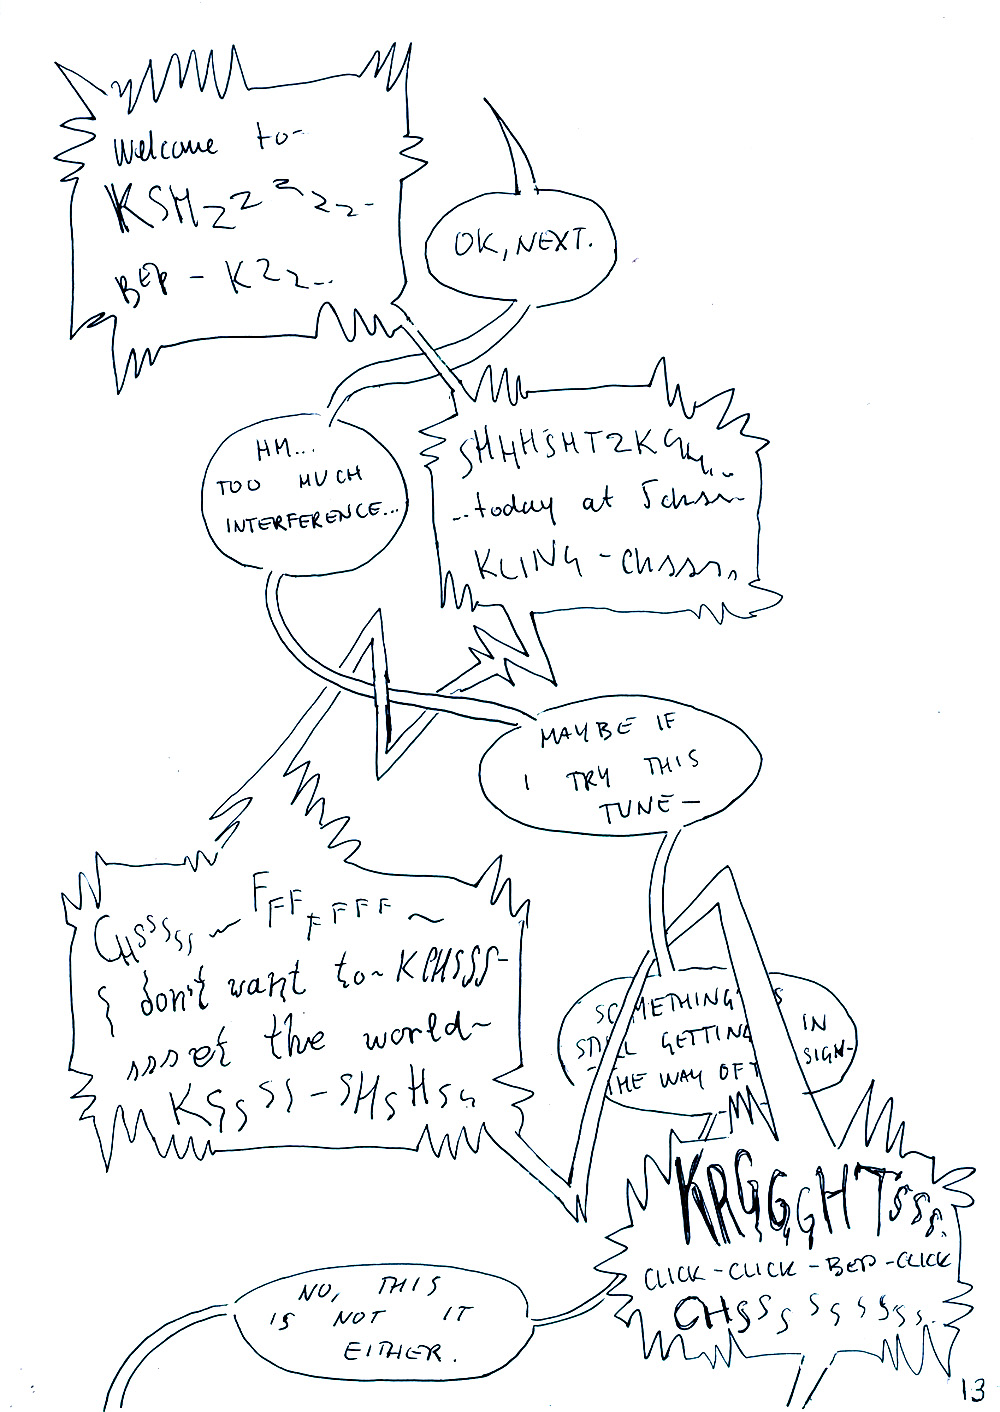 Welcome to-
KSHzzzzz-
BEP - KZz...
OK, NEXT.
HM...
TOO MUCH
INTERFERENCE...
SHHHSHTZKGH...
...today at Schsn-
KLING - CHsssss
MAYBE IF
I TRY THIS
TUNE —
CHSSSSS ~ FFFFFFF ~
I don't want to~ KCHSSS-
ssset the world~
KSSSSS - SHSHSH
SOMETHING'S
STILL GETTING IN
THE WAY OF SIGN-
KRGGGHTSSSS.
CLICK - CLICK - BEP - CLICK
CHSSSSSSSSS.
NO, THIS
IS NOT IT
EITHER.
13